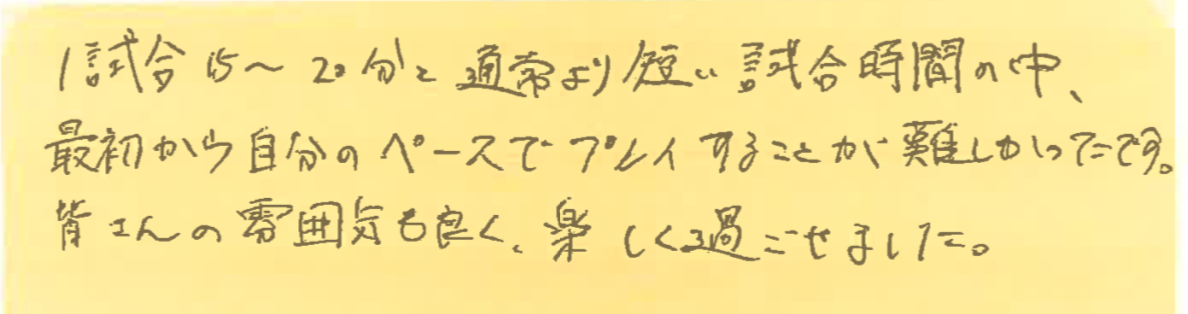 1試合15～20分と通常より短い試合時間の中、
最初から自分のペースでプレイすることが難しかったです。
皆さんの雰囲気も良く、楽しく過ごせました。